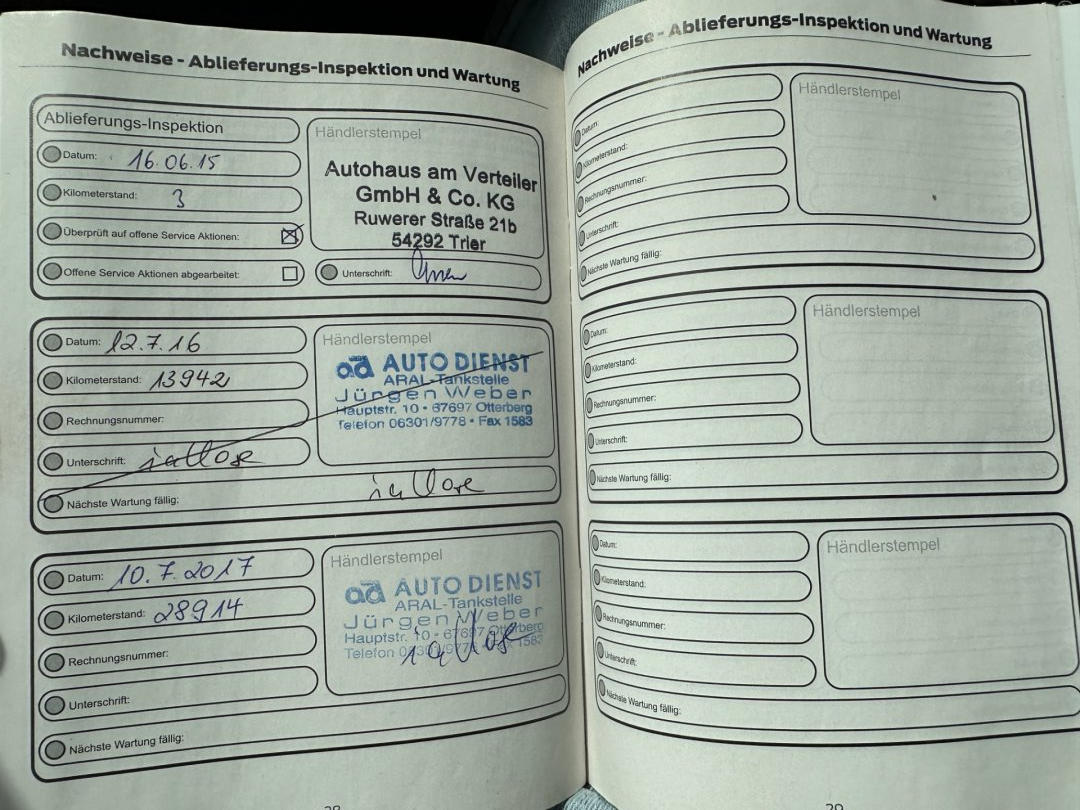 Nachweise - Ablieferungs-Inspektion und Wartung
Ablieferungs-Inspektion
Datum: 16.06.15
Kilometerstand: 3
Überprüft auf offene Service Aktionen: ☒
Offene Service Aktionen abgearbeitet: ☐
Händlerstempel
Autohaus am Verteiler
GmbH & Co. KG
Ruwerer Straße 21b
54292 Trier
Unterschrift:
Datum: 12.7.16
Kilometerstand: 13942
Rechnungsnummer:
Unterschrift:
Nächste Wartung fällig:
Händlerstempel
ad AUTO DIENST
ARAL-Tankstelle
Jürgen Weber
Hauptstr. 10 • 67697 Otterberg
Telefon 06301/9778 • Fax 1583
Datum: 10.7.2017
Kilometerstand: 28914
Rechnungsnummer:
Unterschrift:
Nächste Wartung fällig:
Händlerstempel
ad AUTO DIENST
ARAL-Tankstelle
Jürgen Weber
Hauptstr. 10 - 67697 Otterberg
Telefon 06301/9778 Fax 1583
Nachweise - Ablieferungs-Inspektion und Wartung
Datum:
Kilometerstand:
Rechnungsnummer:
Unterschrift:
Nächste Wartung fällig:
Händlerstempel
Datum:
Kilometerstand:
Rechnungsnummer:
Unterschrift:
Nächste Wartung fällig:
Händlerstempel
Datum:
Kilometerstand:
Rechnungsnummer:
Unterschrift:
Nächste Wartung fällig:
Händlerstempel